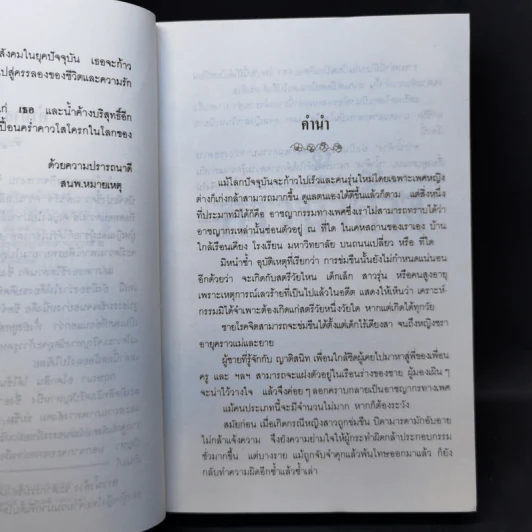 สังคมในยุคปัจจุบัน เธอจะก้าว
ไปสู่ครรลองของชีวิตและความรัก
แก่ เธอ และน้ำค้างบริสุทธิ์อีก
เปื้อนคร่ำคาวโสโครกในโลกของ
ด้วยความปรารถนาดี
สนพ.หมายเหตุ
คำนำ
แม้โลกปัจจุบันจะก้าวไปเร็วและคนรุ่นใหม่โดยเฉพาะเพศหญิง
ต่างก็เก่งกล้าสามารถมากขึ้น ดูแลตนเองได้ดีขึ้นแล้วก็ตาม แต่สิ่งหนึ่ง
ที่ประมาทมิได้ก็คือ อาชญากรรมทางเพศซึ่งเราไม่สามารถทราบได้ว่า
อาชญากรเหล่านั้นซ่อนตัวอยู่ ณ ที่ใด ในเคหสถานของเราเอง บ้าน
ใกล้เรือนเคียง โรงเรียน มหาวิทยาลัย บนถนนเปลี่ยว หรือ ที่ใด
มิหนำซ้ำ อุบัติเหตุที่เรียกว่า การข่มขืนนั้นยังไม่กำหนดแน่นอน
อีกด้วยว่า จะเกิดกับสตรีวัยไหน เด็กเล็ก สาวรุ่น หรือคนสูงอายุ
เพราะเหตุการณ์เลวร้ายที่เป็นไปแล้วในอดีต แสดงให้เห็นว่า เคราะห์-
กรรมมิได้จำเพาะต้องเกิดแก่สตรีวัยหนึ่งวัยใด หากแต่เกิดได้ทุกวัย
ชายโรคจิตสามารถจะข่มขืนได้ตั้งแต่เด็กไร้เดียงสา จนถึงหญิงชรา
อายุคราวแม่และยาย
ผู้ชายที่รู้จักกับ ญาติสนิท เพื่อนใกล้ชิดผู้เคยไปมาหาสู่พี่ของเพื่อน
ครู และ ฯลฯ สามารถจะแฝงตัวอยู่ในเรือนร่างของชาย ผู้มองเผิน ๆ
จะน่าไว้วางใจ แล้วจึงค่อย ๆ ลอกคราบกลายเป็นอาชญากรทางเพศ
แม้คนประเภทนี้จะมีจำนวนไม่มาก หากก็ต้องระวัง
สมัยก่อน เมื่อเกิดกรณีหญิงสาวถูกข่มขืน บิดามารดามักอับอาย
ไม่กล้าแจ้งความ จึงยังความย่ามใจให้ผู้กระทำผิดกล้าประกอบกรรม
ชั่วมากขึ้น แต่บางราย แม้ถูกจับจำคุกแล้วพ้นโทษออกมาแล้ว ก็ยัง
กลับทำความผิดอีกซ้ำแล้วซ้ำเล่า